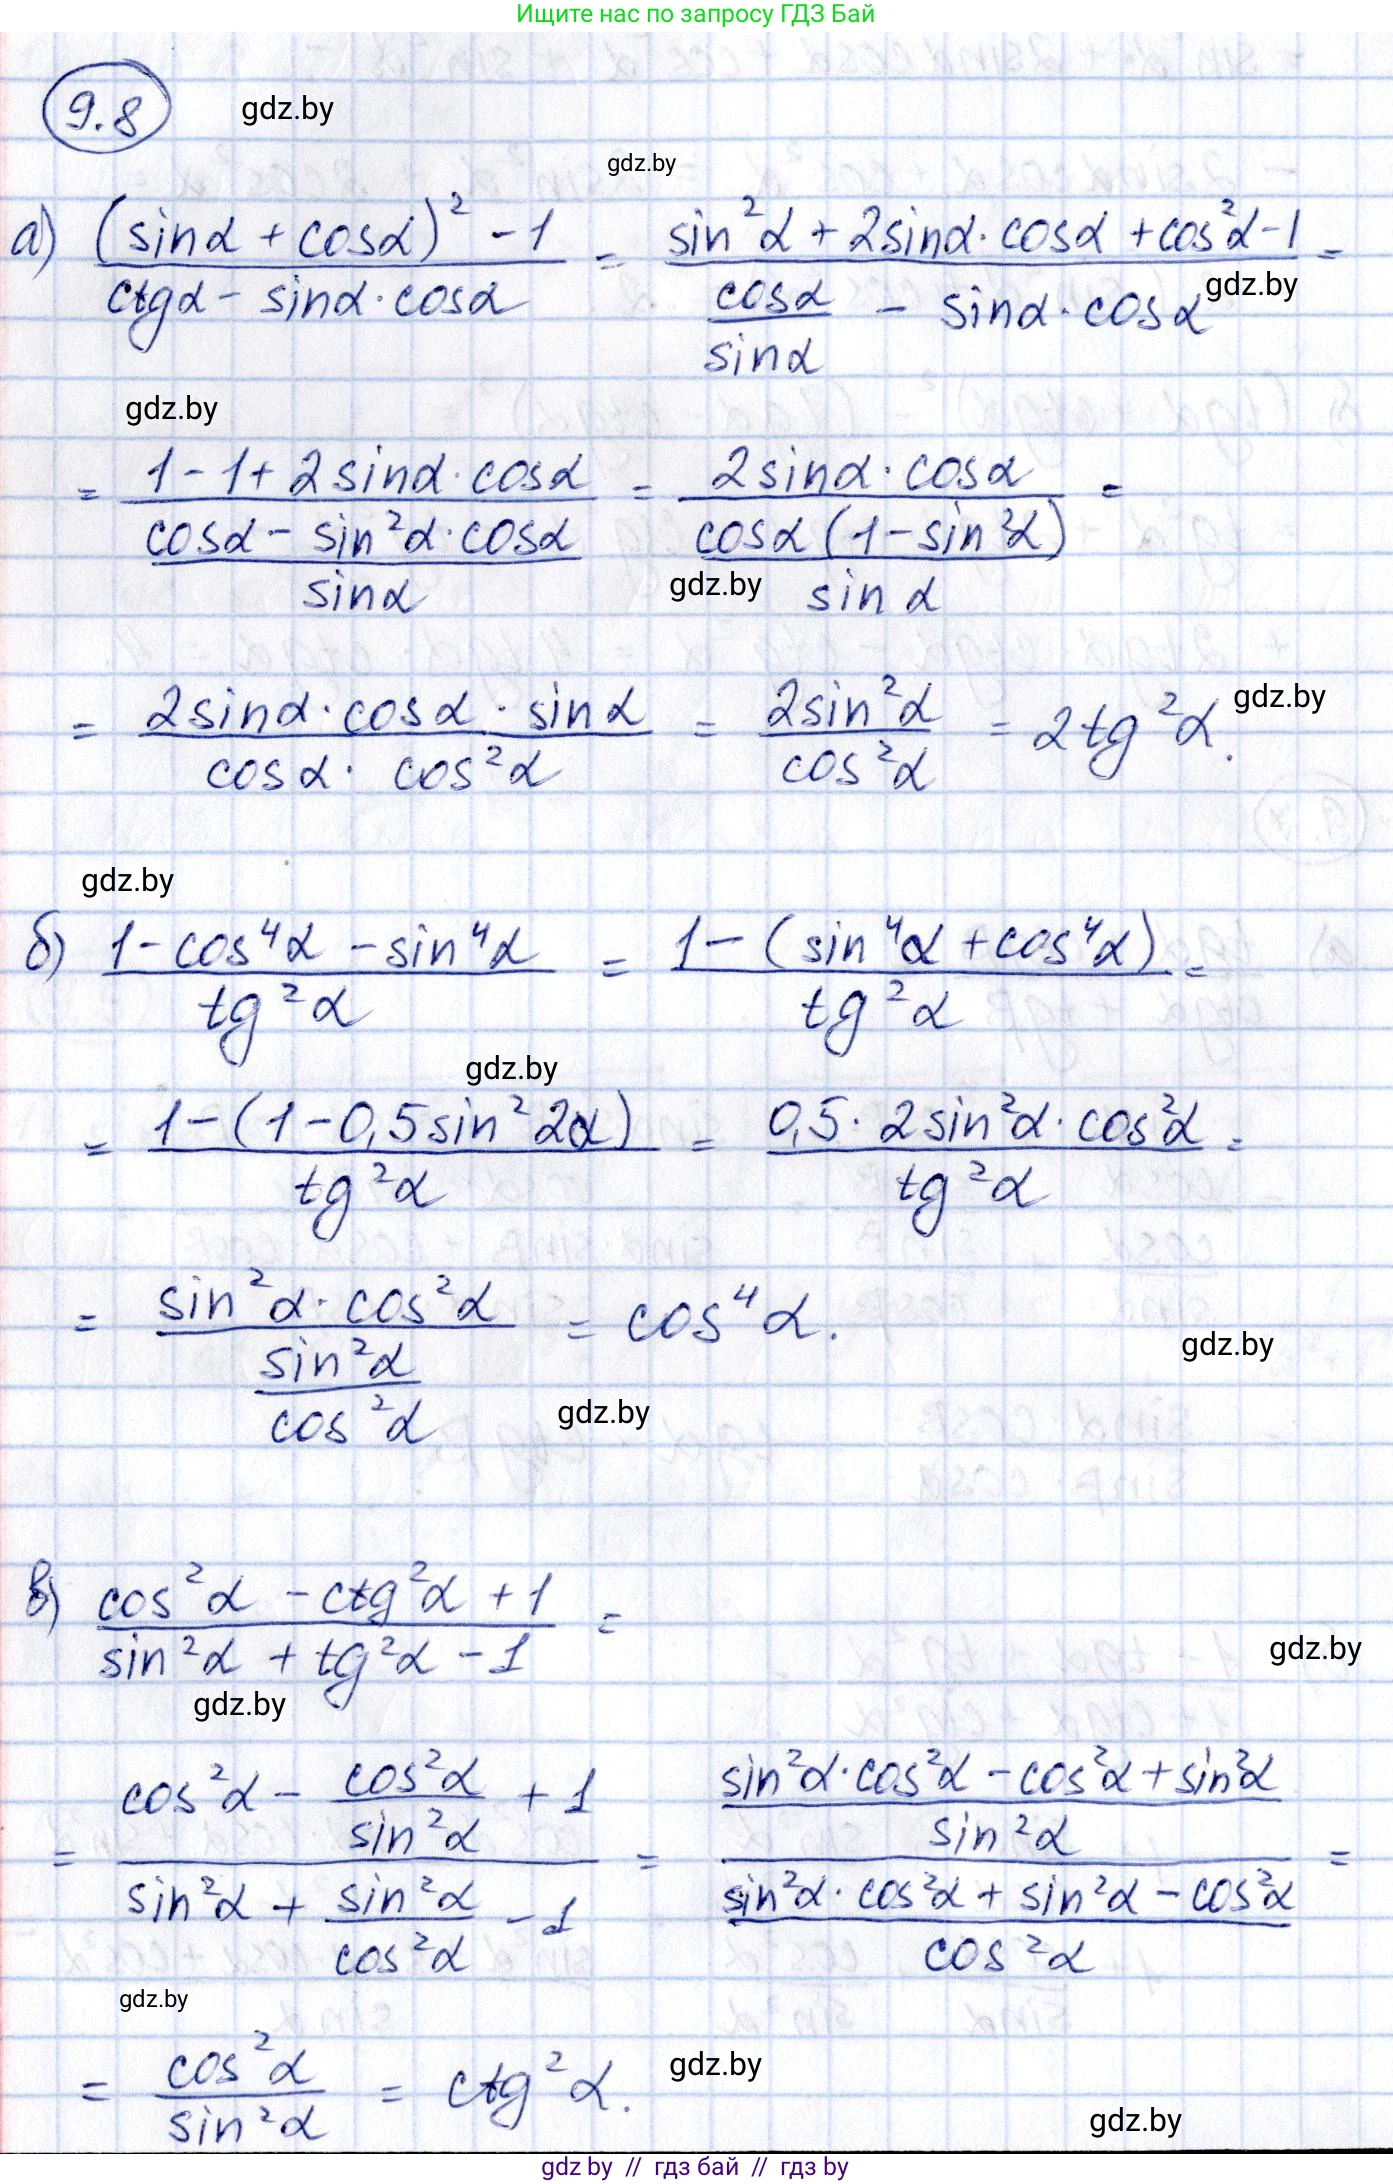 Ищите нас по запросу ГДЗ Бай
9.8
gdz.by
gdz.by
а) ((sinα + cosα)² - 1)/(ctgα - sinα·cosα) = (sin²α + 2sinα·cosα + cos²α - 1)/(cosα/sinα - sinα·cosα) =
gdz.by
gdz.by
= (1 - 1 + 2sinα·cosα)/((cosα - sin²α·cosα)/sinα) = (2sinα·cosα)/((cosα(1 - sin²α))/sinα) =
gdz.by
= (2sinα·cosα·sinα)/(cosα·cos²α) = (2sin²α)/(cos²α) = 2tg²α.
gdz.by
gdz.by
б) (1 - cos⁴α - sin⁴α)/(tg²α) = (1 - (sin⁴α + cos⁴α))/(tg²α) =
gdz.by
= (1 - (1 - 0,5sin²2α))/(tg²α) = (0,5·2sin²α·cos²α)/(tg²α) =
= (sin²α·cos²α)/(sin²α/cos²α) = cos⁴α.
gdz.by
gdz.by
в) (cos²α - ctg²α + 1)/(sin²α + tg²α - 1) =
gdz.by
gdz.by
= (cos²α - cos²α/sin²α + 1)/(sin²α + sin²α/cos²α - 1) = ((sin²α·cos²α - cos²α + sin²α)/sin²α)/((sin²α·cos²α + sin²α - cos²α)/cos²α) =
gdz.by
= cos²α/sin²α = ctg²α.
gdz.by
gdz.by
gdz by // гдз бай // gdz by